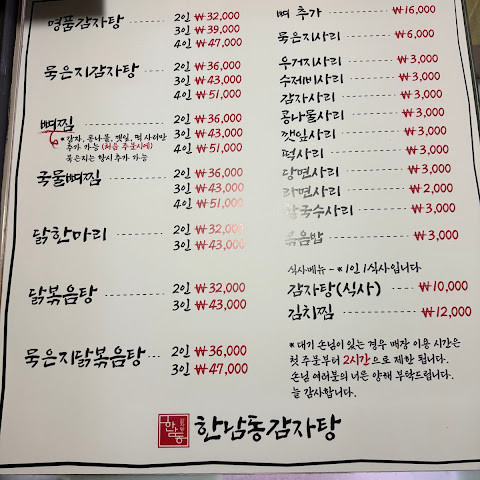 명품감자탕 ---- 2인 ₩32,000
3인 ₩39,000
4인 ₩47,000
묵은지감자탕 ---- 2인 ₩36,000
3인 ₩43,000
4인 ₩51,000
뼈찜 ---- 2인 ₩36,000
*감자, 콩나물, 깻잎, 떡 사리만 3인 ₩43,000
추가 가능 (처음 주문시에) 4인 ₩51,000
묵은지는 항시 추가 가능
국물뼈찜 ---- 2인 ₩36,000
3인 ₩43,000
4인 ₩51,000
닭한마리 ---- 2인 ₩32,000
3인 ₩43,000
닭볶음탕 ---- 2인 ₩32,000
3인 ₩43,000
묵은지닭볶음탕 ---- 2인 ₩36,000
3인 ₩47,000
뼈 추가 ---- ₩16,000
묵은지사리 ---- ₩6,000
우거지사리 ---- ₩3,000
수제비사리 ---- ₩3,000
감자사리 ---- ₩3,000
콩나물사리 ---- ₩3,000
깻잎사리 ---- ₩3,000
떡사리 ---- ₩3,000
당면사리 ---- ₩3,000
라면사리 ---- ₩2,000
칼국수사리 ---- ₩3,000
볶음밥 ---- ₩3,000
식사메뉴 - *1인 1식사입니다
감자탕(식사) -- ₩10,000
김치찜 ---- ₩12,000
*대기 손님이 있는 경우 매장 이용 시간은
첫 주문부터 2시간으로 제한 됩니다.
손님 여러분의 너른 양해 부탁드립니다.
늘 감사합니다.
한남동감자탕